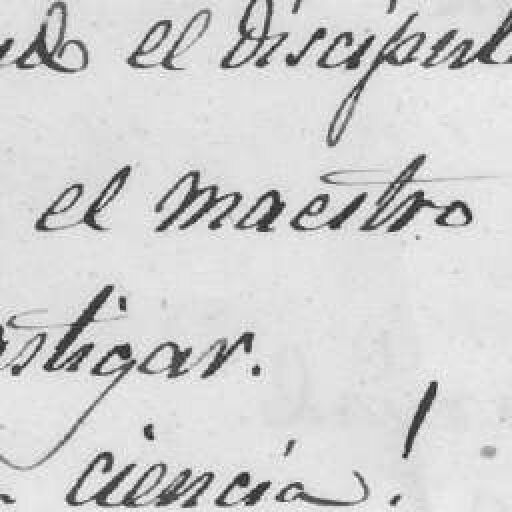 el discipul
el maestro
stigar.
ciencia!